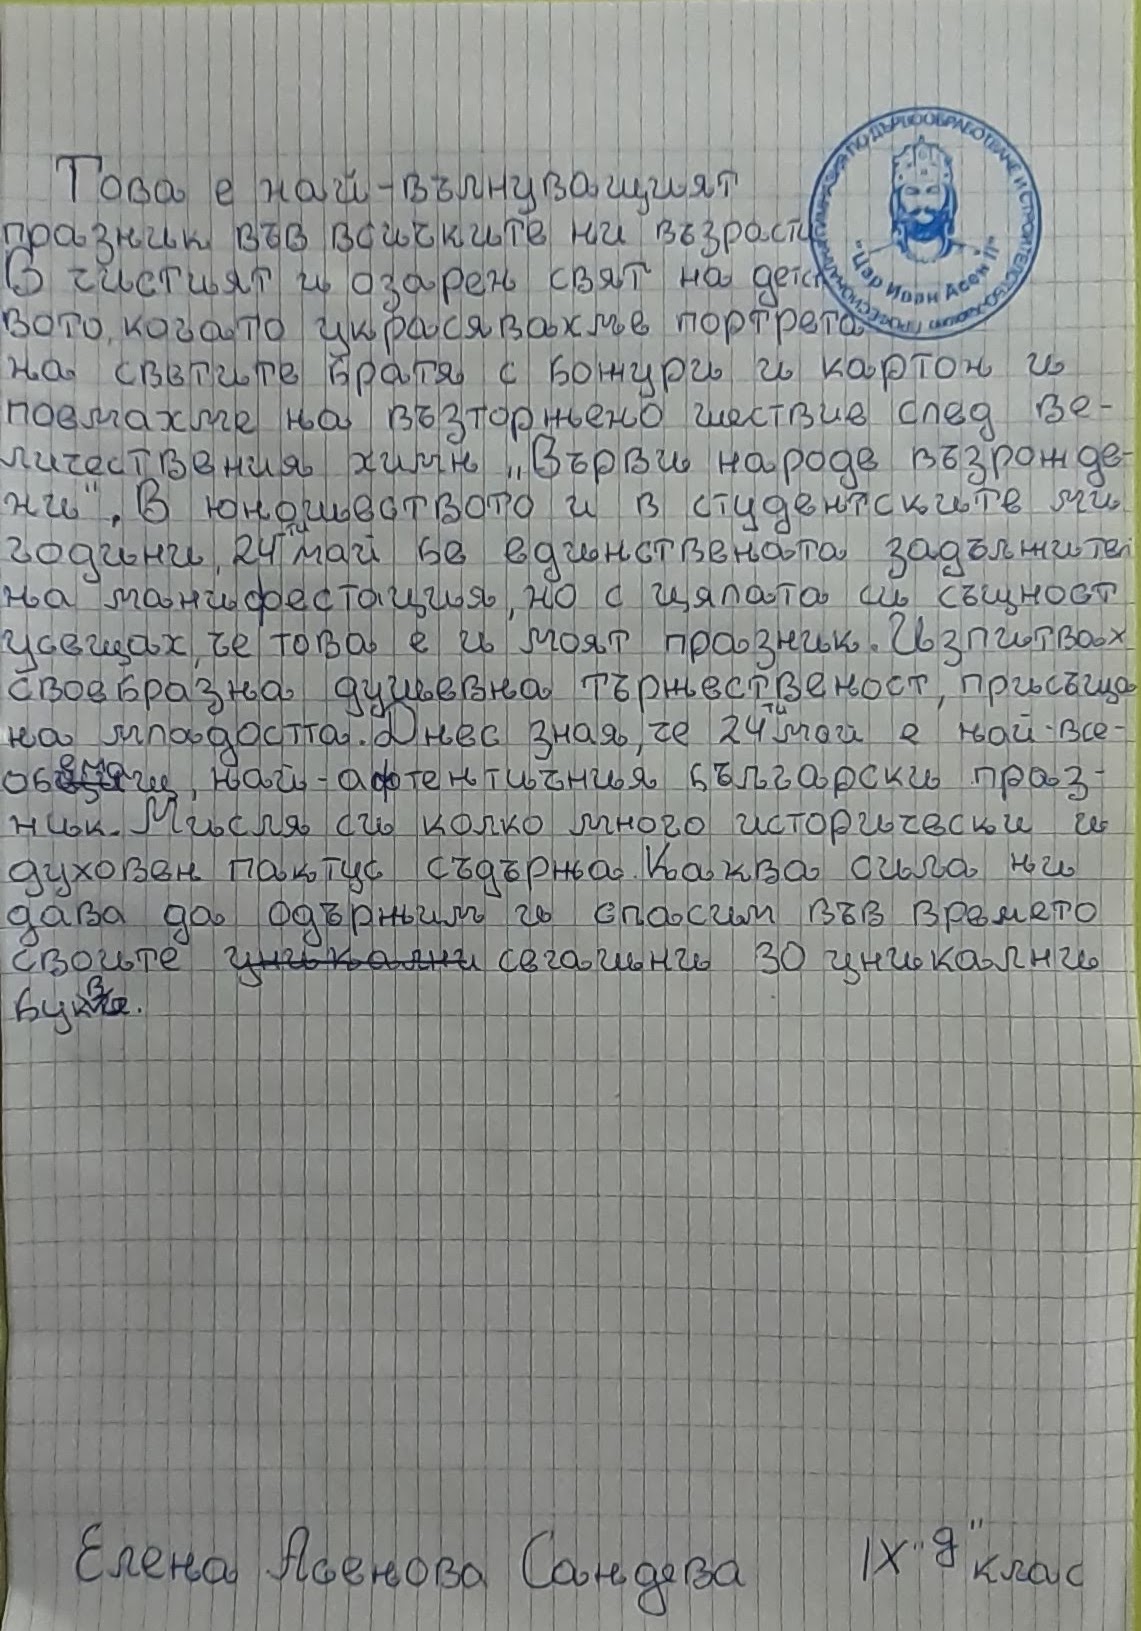 Това е най-вълнуващият
празник във всичките ни възрасти
В чистият и озарен свят на детс
вото, когато украсявахме портрета
на светите братя с божури и картон и
поемахме на възторжено шествие след ве-
личествения химн „Върви народе възрожде-
ни". В юношеството и в студентските ми
години, 24ти май бе единствената задължител
на манифестация, но с цялата си същност
усещах, че това е и моят празник. Изпитвах
своебразна душевна тържественост, присъща
на младостта. Днес зная, че 24ти май е най-все-
обемащ, най-афтентичния български праз-
ник. Мисля си колко много исторически и
духовен пактус съдържа. Каква сила ни
дава да одържим и спасим във времето
своите уникални сегашни 30 уникални
букв.
Елена Асенова Сандева IX "д" клас
"Цар Иван Асен II"